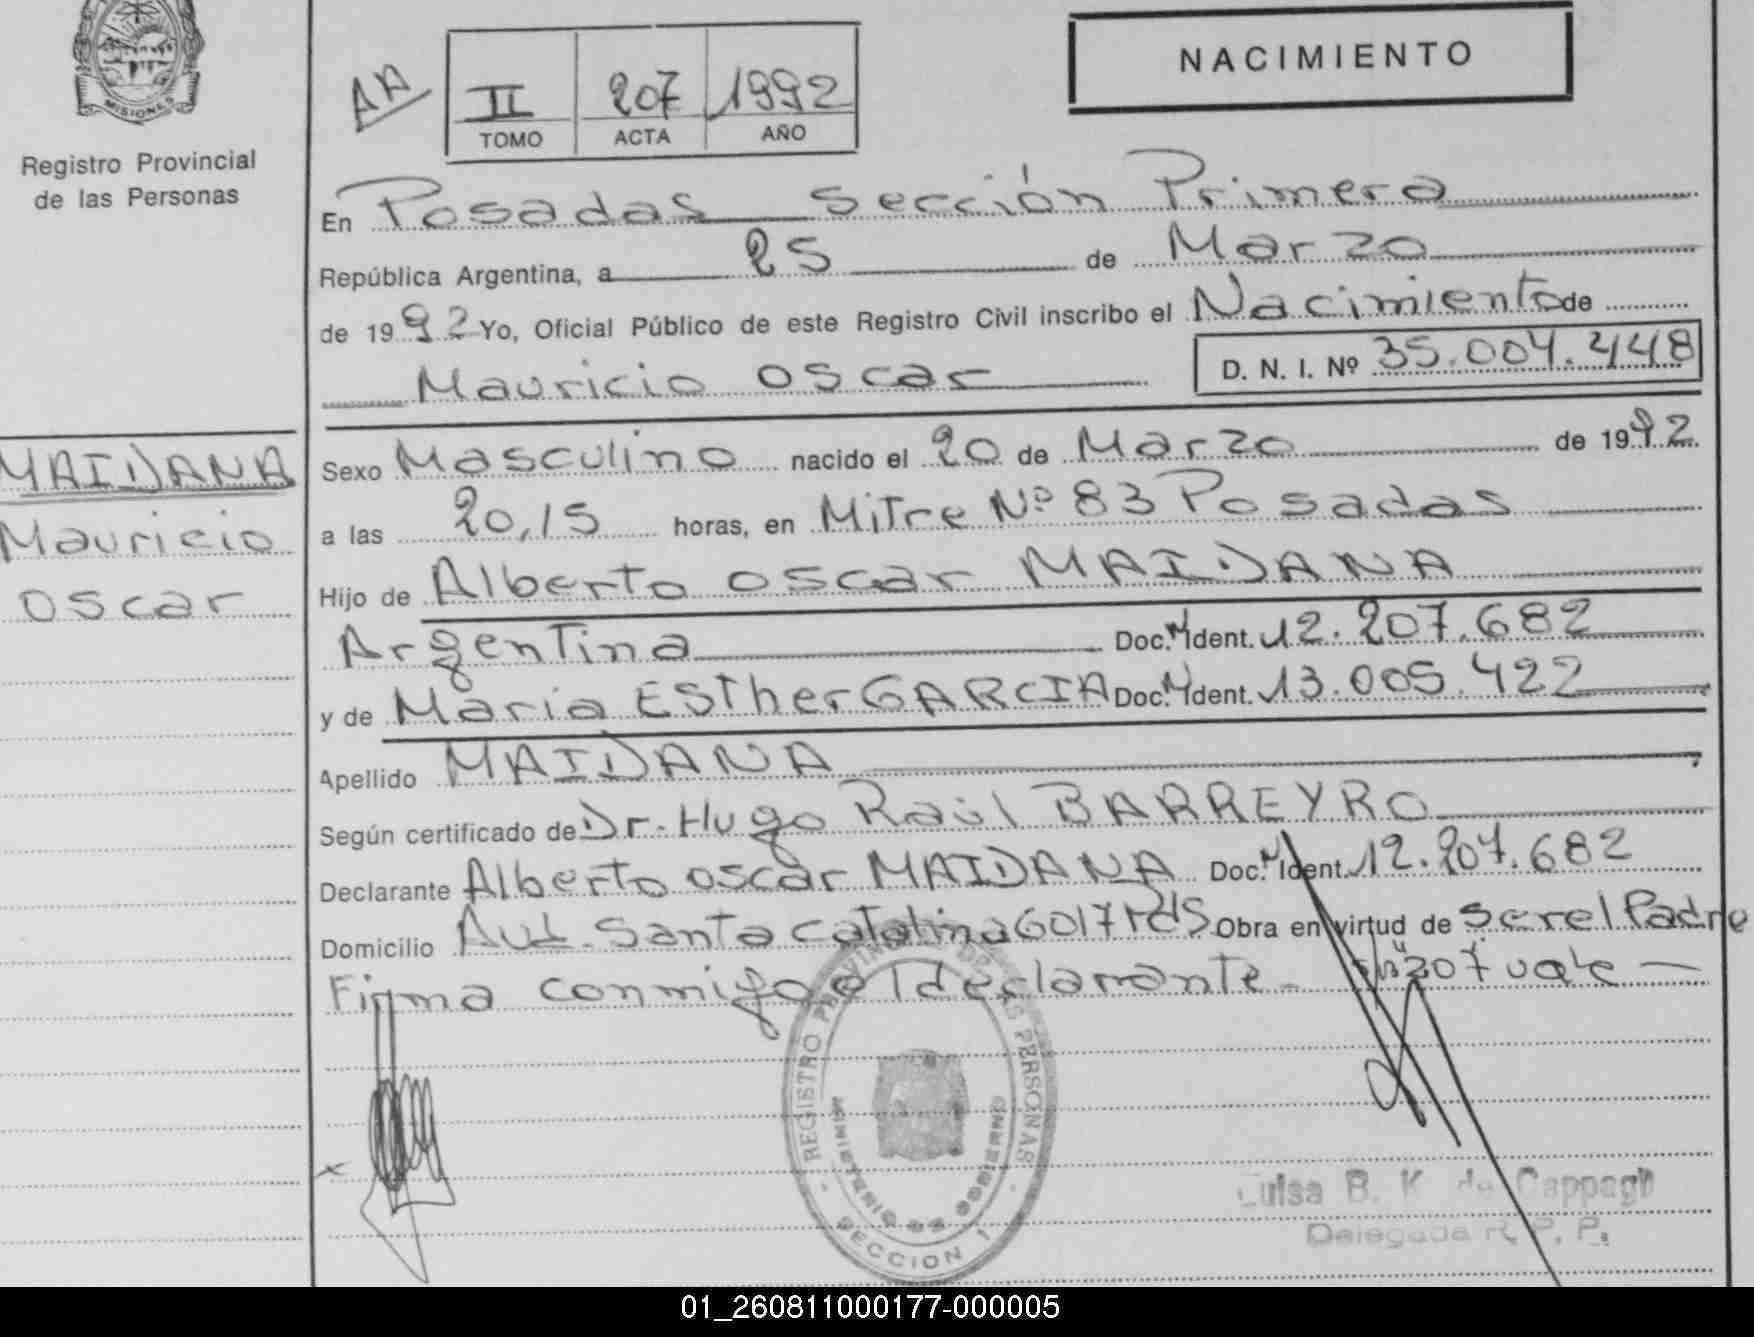 MISIONES
Registro Provincial
de las Personas
MAIDANA
Mauricio
Oscar
AA
II 207 1992
TOMO ACTA AÑO
NACIMIENTO
En Posadas Sección Primera
República Argentina, a 25 de Marzo
de 1992 Yo, Oficial Público de este Registro Civil inscribo el Nacimiento de
Mauricio Oscar D. N. I. Nº 35.004.448
Sexo Masculino nacido el 20 de Marzo de 1992
a las 20,15 horas, en Mitre Nº 83 Posadas
Hijo de Alberto Oscar MAIDANA
Argentina Doc. N Ident. 12.207.682
y de Maria Esther GARCIA Doc. N Ident. 13.005.422
Apellido MAIDANA
Según certificado de Dr. Hugo Raúl BARREYRO
Declarante Alberto Oscar MAIDANA Doc. N Ident. 12.207.682
Domicilio Avd. Santa Catalina 6017 Pds Obra en virtud de ser el Padre
Firma conmigo el declarante. 207 vale
REGISTRO PROVINCIAL DE LAS PERSONAS
MINISTERIO DE GOBIERNO
SECCION 1ª
Luisa B. K. de
Delegada R. P. P.
01_260811000177-000005